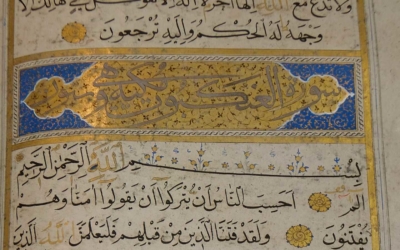 ولا تدع مع الله إلها آخر لا إله إلا هو كل شيء هالك إلا
وجهه له الحكم وإليه ترجعون
سورة العنكبوت
بسم الله الرحمن الرحيم
الم احسب الناس ان يتركوا ان يقولوا امنا وهم
يفتنون ولقد فتنا الذين من قبلهم فليعلمن الله الذين